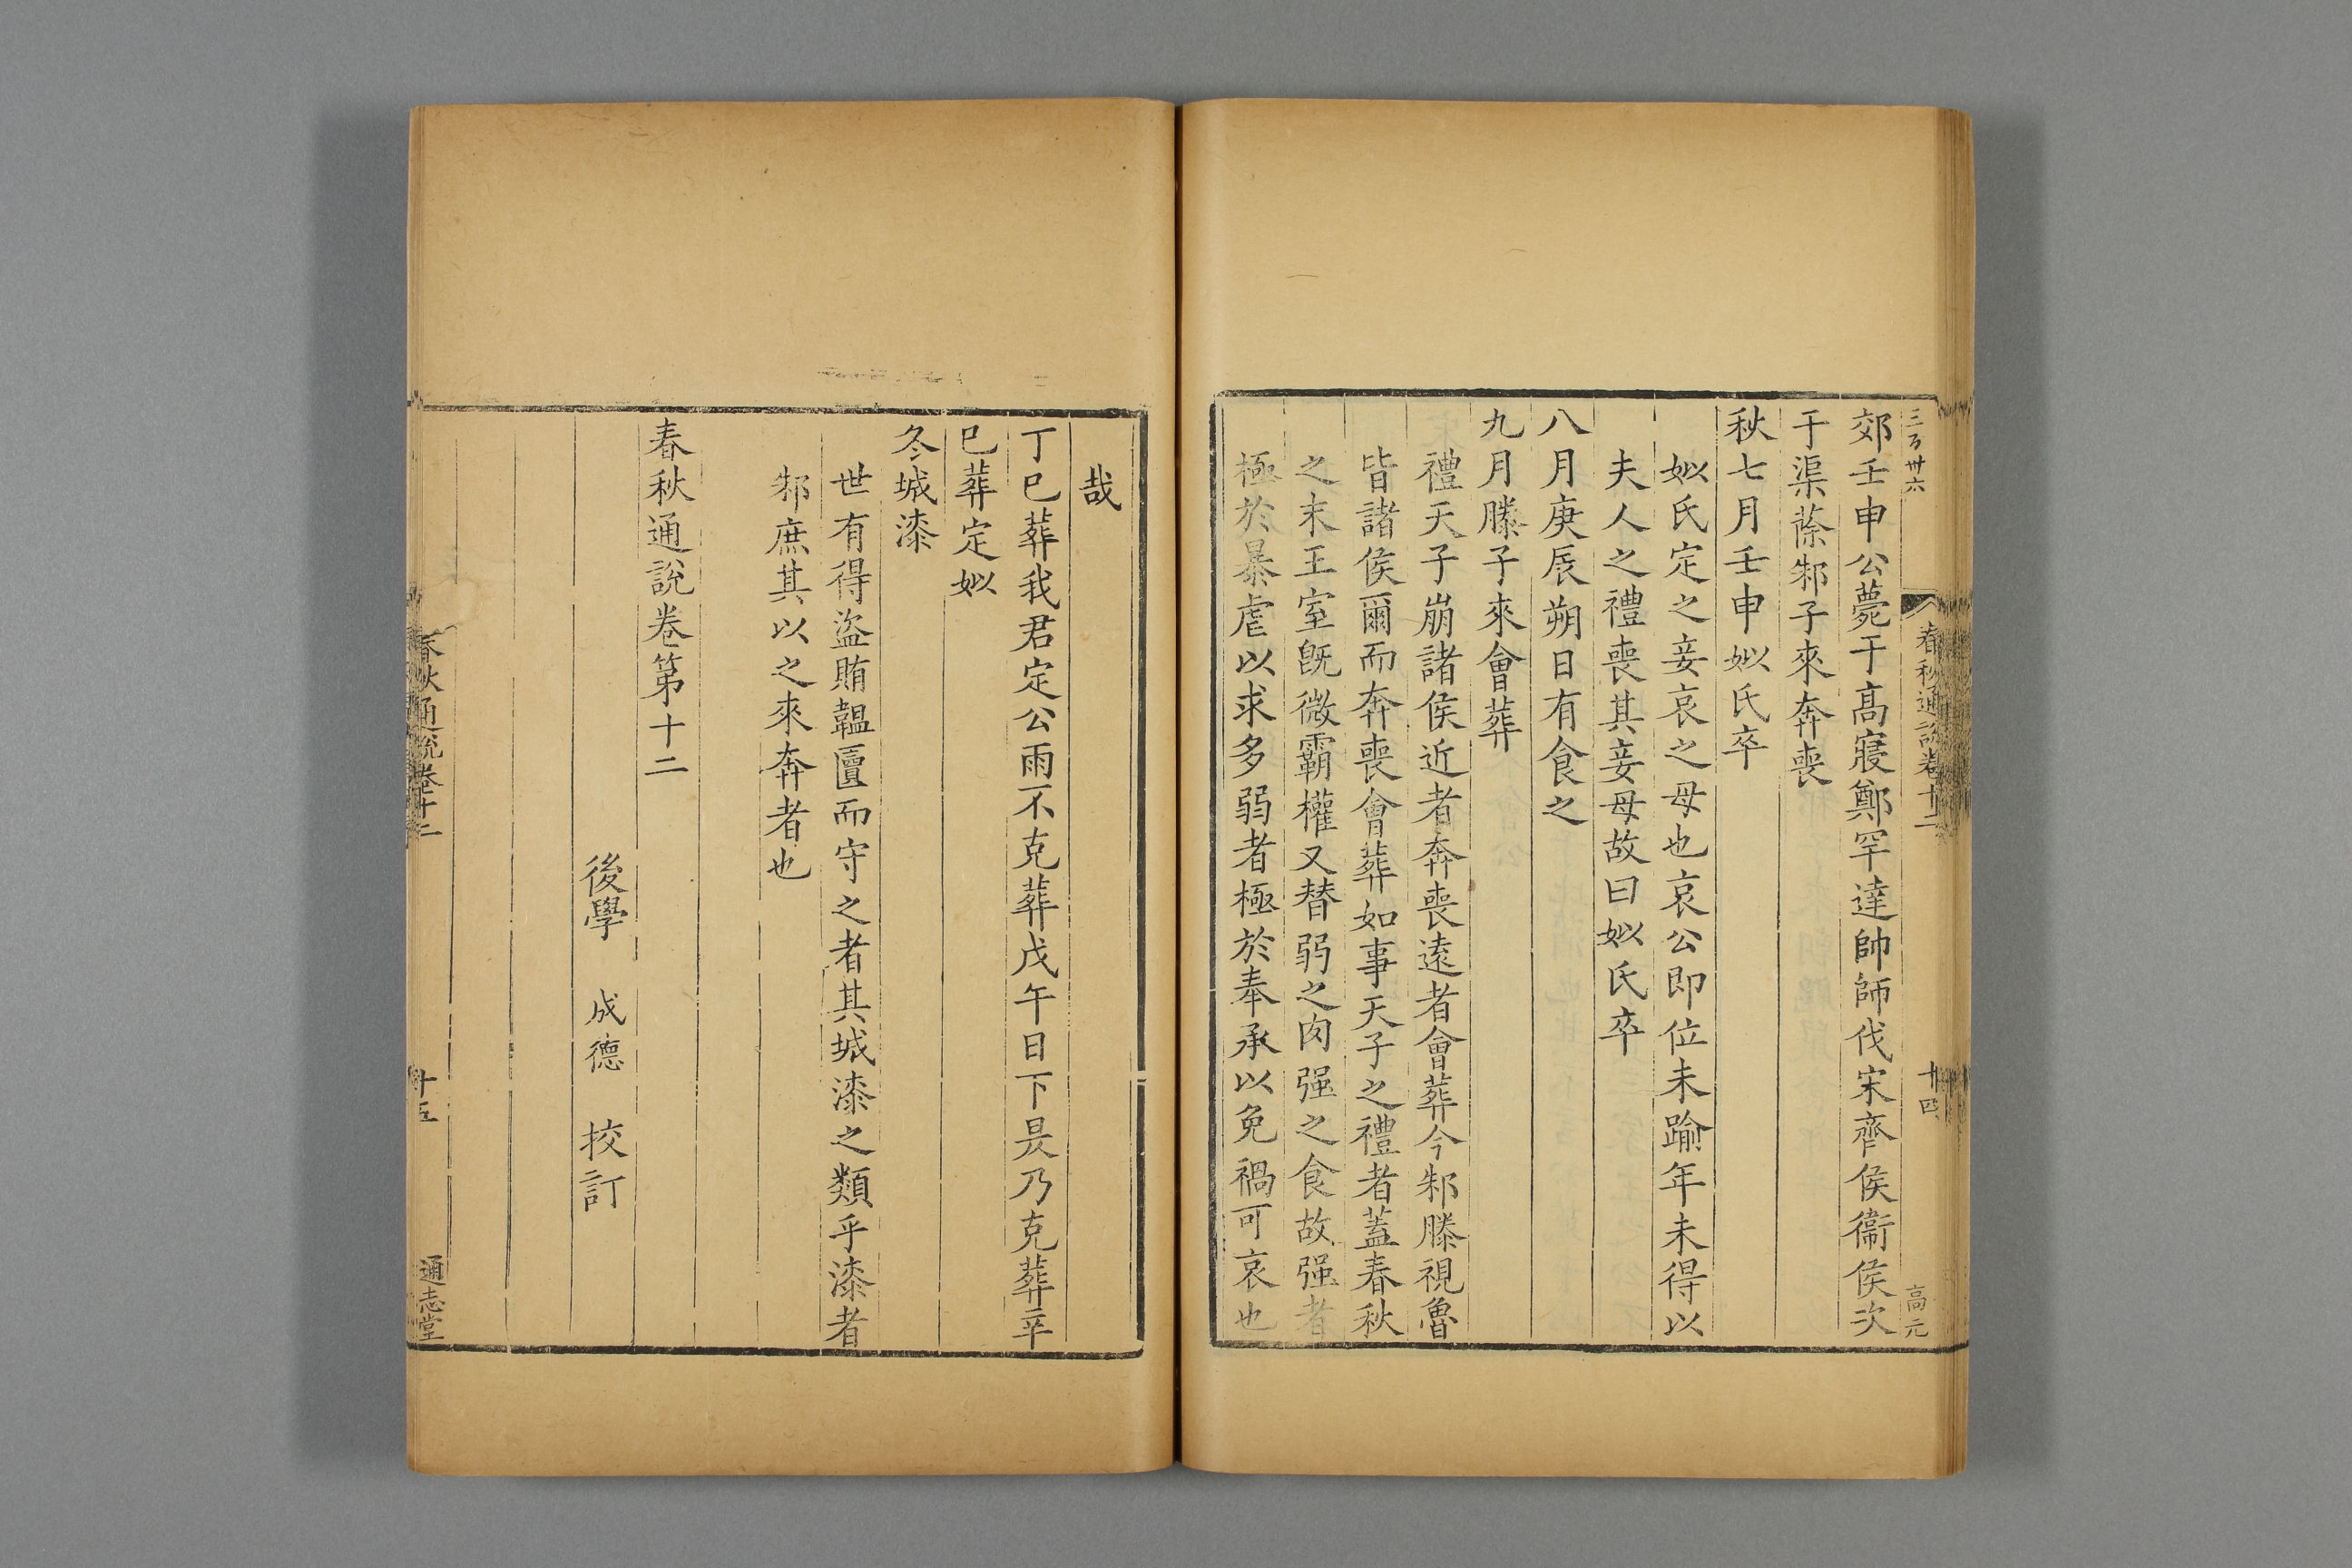 三百卅六
春秋通說卷十二
十四
高元
郊壬申公薨于高寢鄭罕達帥師伐宋齊侯衞侯次
于渠蒢邾子來奔喪
秋七月壬申姒氏卒
姒氏定之妾哀之母也哀公即位未踰年未得以
夫人之禮喪其妾母故曰姒氏卒
八月庚辰朔日有食之
九月滕子來會葬
禮天子崩諸侯近者奔喪遠者會葬今邾滕視魯
皆諸侯爾而奔喪會葬如事天子之禮者蓋春秋
之末王室旣微霸權又替弱之肉强之食故强者
極於暴虐以求多弱者極於奉承以免禍可哀也
哉
丁巳葬我君定公雨不克葬戊午日下昃乃克葬辛
巳葬定姒
冬城漆
世有得盜賄韞匵而守之者其城漆之類乎漆者
邾庶其以之來奔者也
春秋通說卷第十二
後學 成德 挍訂
春秋通說卷十二
十五
通志堂